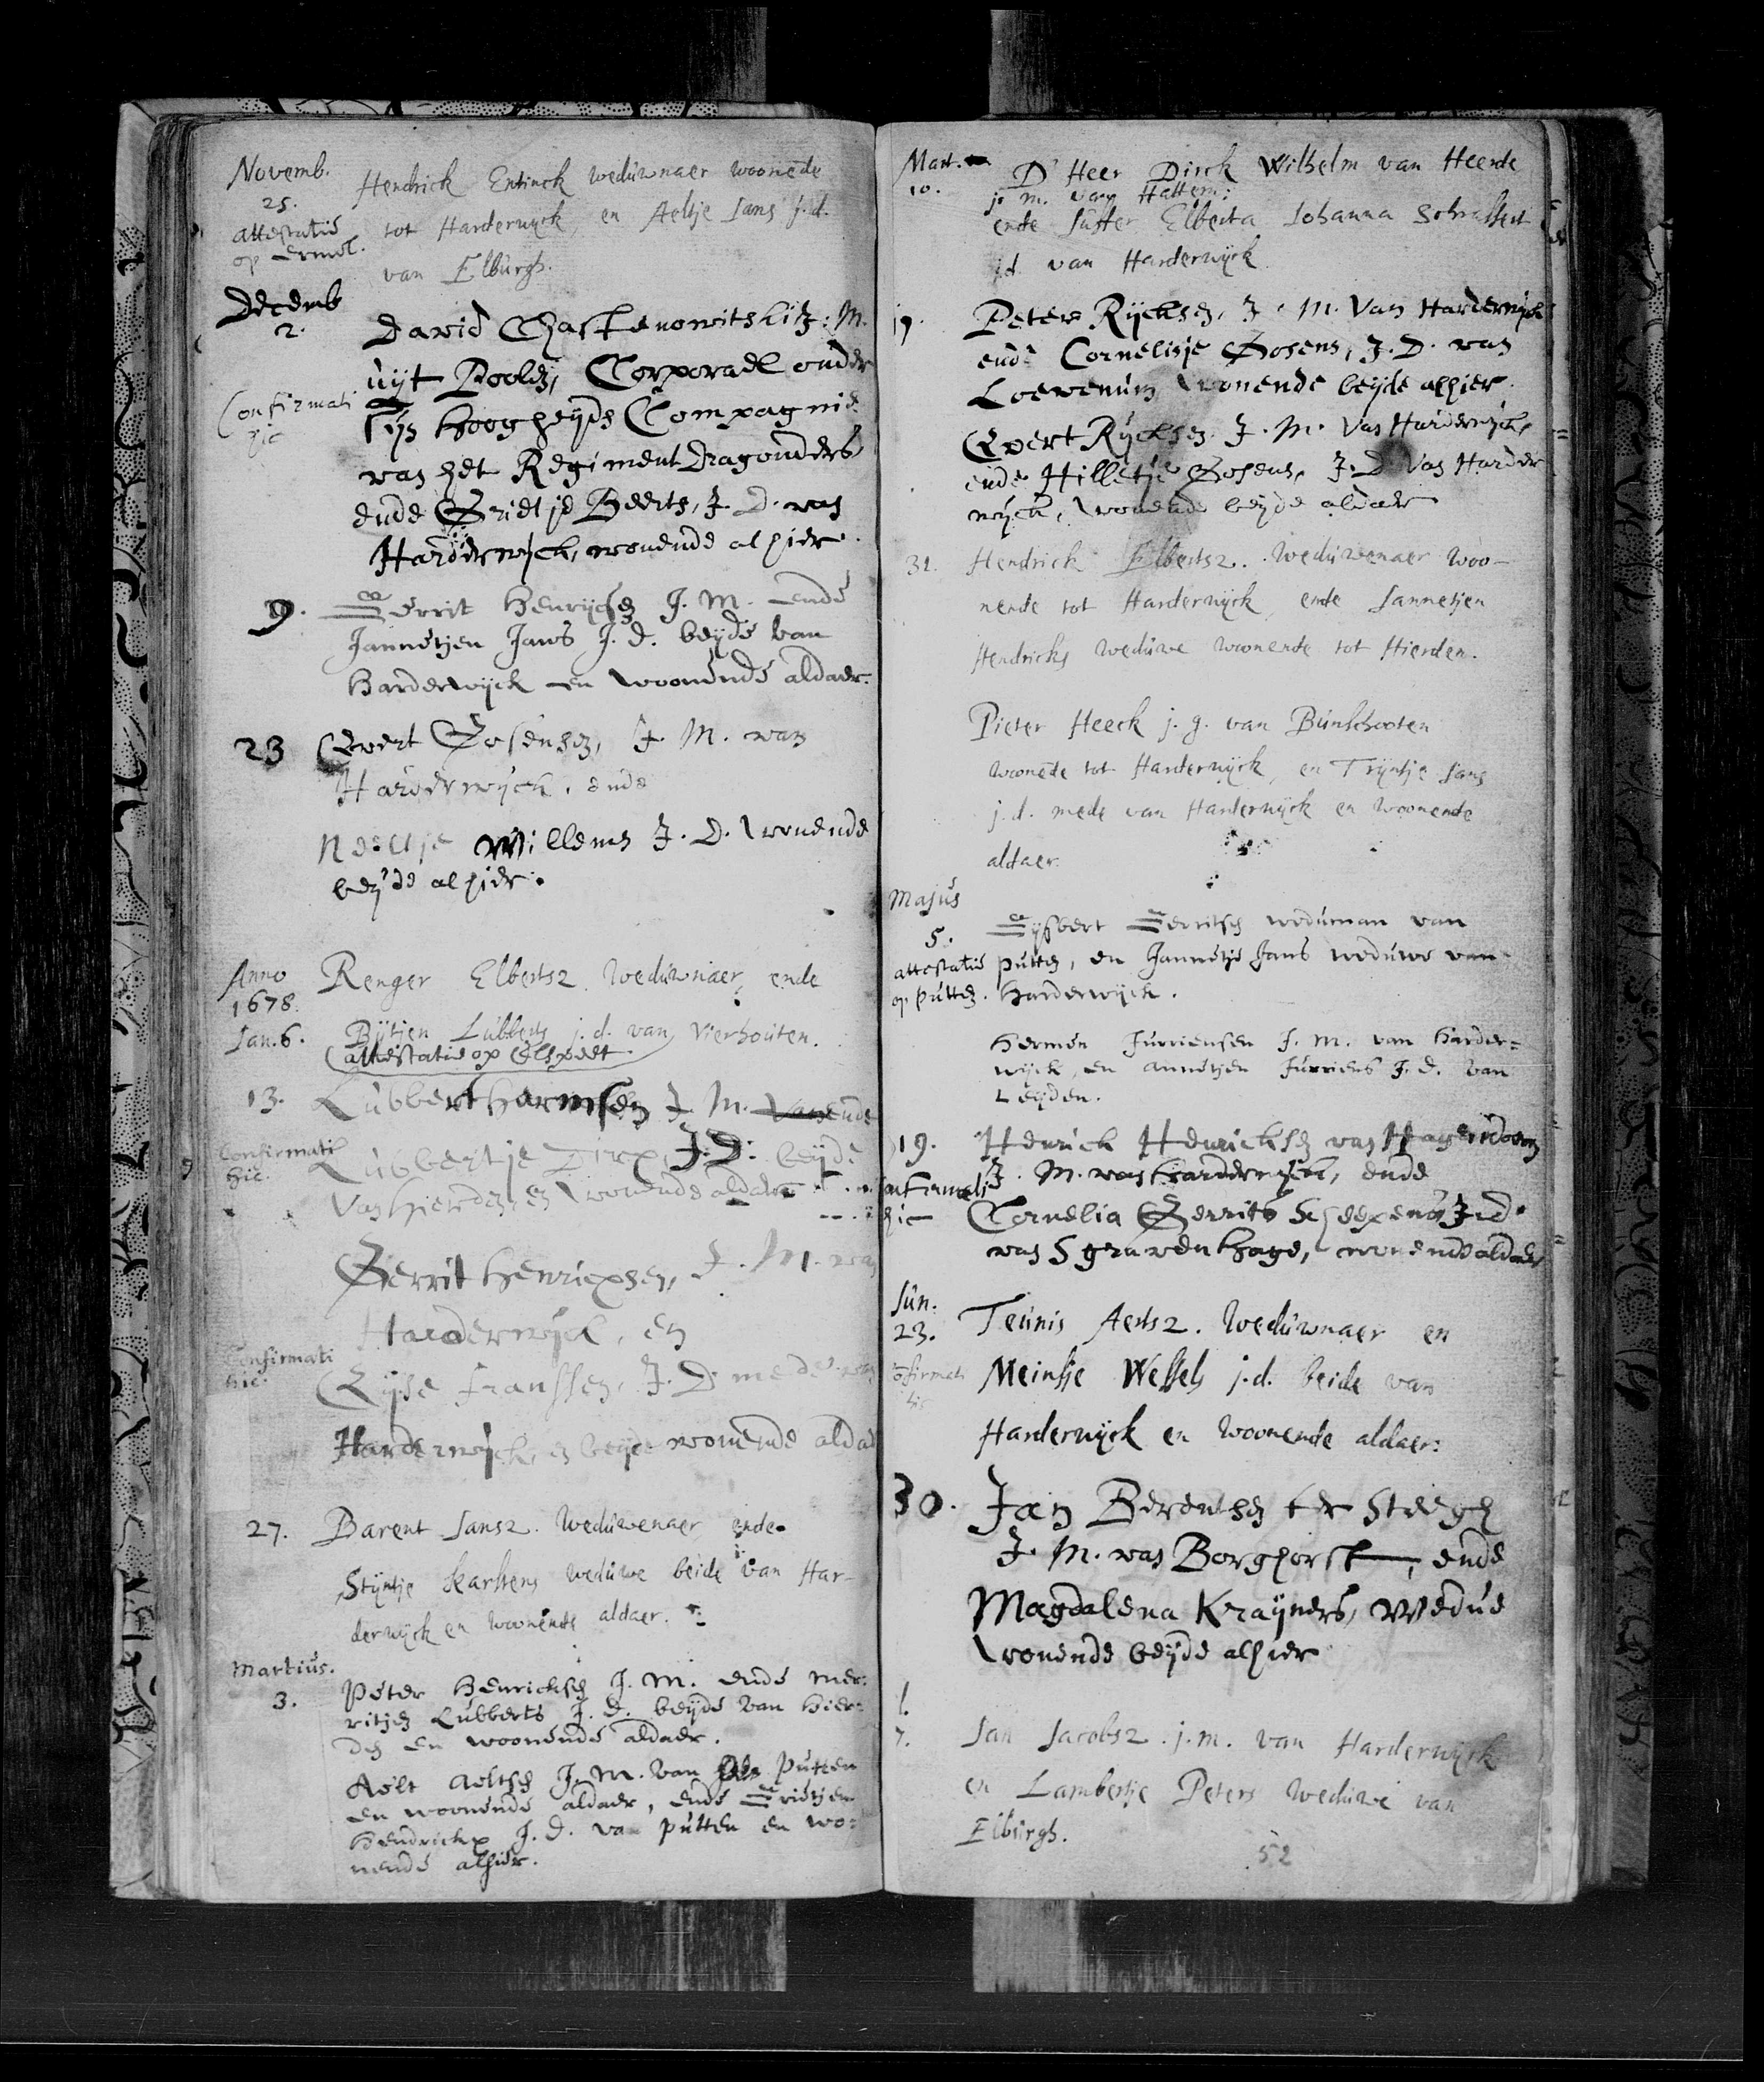 Novemb.
25.
attestatie
op Ermel.
Hendrick Entinck weduwnaer woonēde
tot Harderwyck, en Aeltje Jans j.d.
van Elburgh.
Decemb
2.
Confirmati
hic
David
uÿt Poolen, Corporael onder
sijn Hoogheyds Compagnie
van het Regiment Dragonders
ende Grietje Beerts, J. D. van
Harderwÿck, wonende alhier.
9. Gerrit Henrijcksen J. M. ende
Jannetjen Jans J. d. beÿde van
Harderwijck en woonende aldaer.
23 Evert Gosensen, J. M. van
Harderwÿck, ende
Neeltje Willems J. D. wonende
beÿde alhier.
Anno
1678.
Jan. 6.
Renger Elbertsz. weduwnaer, ende
Bijtjen Lubberts j.d. van Vierhouten.
(attestatie op Elspeet
13.
Confirmati
hic.
Lubbert Harmsen J. M. van ende
Lubbertje Dirx, J.D: beÿde
van Hierden, en wonende aldaer
Gerrit Henrixsen, J. M. van
Harderwÿck, en
Confirmati
hic.
Franssen, J. D. mede van
Harderwÿck, en beÿde wonende aldaer
27. Barent Jansz. weduwenaer ende
Stÿntje Karstens weduwe beide van Har-
derwÿck en woonende aldaer.
Martius.
3.
Peter Henricksen J. M. ende Mer-
ritjen Lubberts J. d. beÿde van Hier-
den en woonende aldaer.
Aelt Aeltsen J. M. van Putten
en woonende aldaer, ende Grietjen
Hendrickx J. d. van Putten en wo-
nende alhier.
Mart.
10.
D' Heer Dirck Wilhelm van Heerde
j. m. van Hattem:
ende Juffer Elberta Johanna Schrassert
j.d. van Harderwijck
19. Peter Rÿcksen, J. M. van Harderwijck
ende Cornelisje Gosens, J. D. van
Loevenum, wonende beÿde alhier.
Evert Rÿcksen J. M. van Harderwijck,
ende Hilletje Gosens, J. D. van Harder
wÿck, wonende beÿde aldaer
31. Hendrick Elbertsz. weduwenaer woo-
nende tot Harderwijck, ende Jannetjen
Hendricks weduwe woonende tot Hierden.
Pieter Heeck j. g. van Bunschooten
woonēde tot Harderwijck, en Trijntje Jans
j. d. mede van Harderwijck en woonende
aldaer.
Majus
5.
attestatie
op Putten.
Gijsbert Gerritsen weduman van
Putten, en Jannetje Jans weduwe van
Harderwijck.
Hermen Jurriensen J. M. van Harder=
wijck, en Annetjen Jurriens J. d. van
Leijden.
19.
Confirmati
hic
Henrick Hendricksen van Hagendoorn
J. M. van Harderwijck, ende
Cornelia Gerrits Scheepens J. D.
van S gravenhage, wonende aldaer
Jun.
23.
cōfirmati
hic
Teunis Aertsz. weduwnaer en
Meinsje Wessels j.d. beide van
Harderwijck en woonende aldaer:
30. Jan Berentsen ter Steegh
J. M. van Borghorst, ende
Magdalena Kraijners, Wedue
wonende beÿde alhier
7. Jan Jacobsz. j.m. van Harderwijck
en Lambertje Peters weduwe van
Elburgh.
52